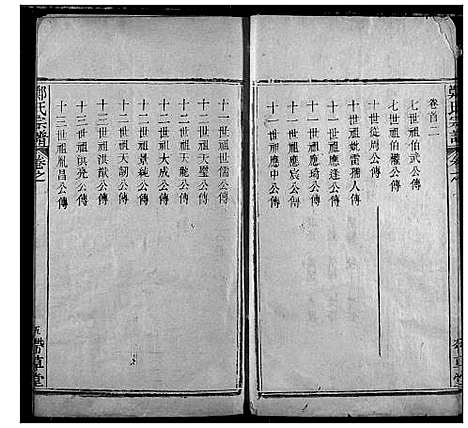 卷首二
七世祖伯武公傳
七世祖伯權公傳
十世從周公傳
十世祖妣雷孺人傳
十一世祖應逵公傳
十一世祖應琦公傳
十一世祖應宸公傳
十一世祖應中公傳
十一世祖世儒公傳
十二世祖天璧公傳
十二世祖天龍公傳
十二世祖大成公傳
十二世祖景純公傳
十二世祖天韌公傳
十三世祖洪猷公傳
十三世祖洪 公傳
十三世祖胤昌公傳
鄭氏宗譜
卷之